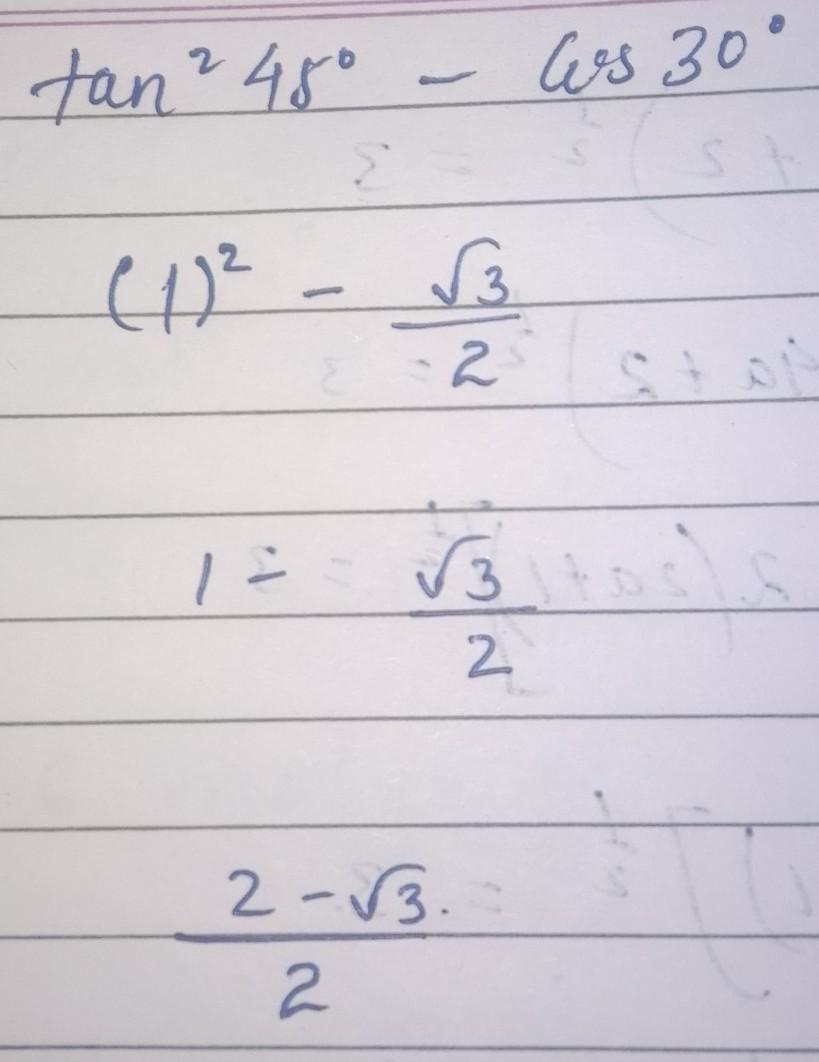 tan² 45° - Cos 30°
(1)² - √3/2
1 - √3/2
2 - √3/2